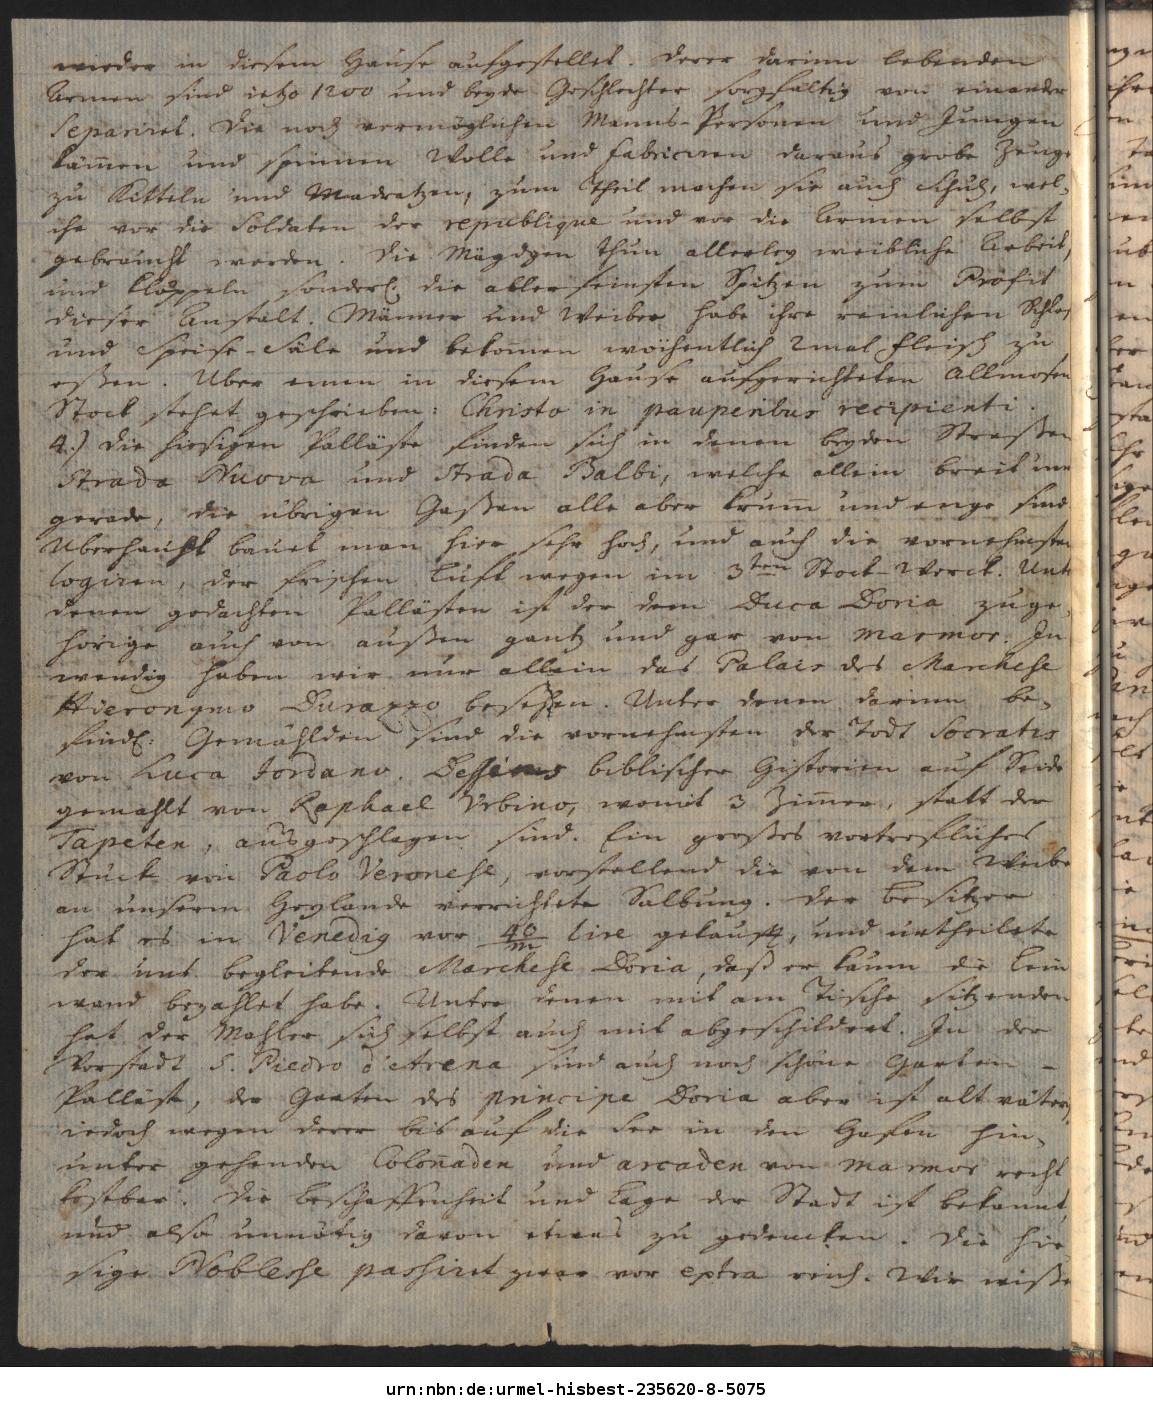 wieder in diesem Hause aufgestellet. Derer darinn lebenden
Armen sind ietzo 1200 und beyde Geschlechter sorgfältig von einander
separiret. Die noch vermöglichen Manns-Personen und Jungen
käm̅en und spinnen Wolle und fabriciren daraus grobe Zeuge
zu Kitteln und Madratzen, zum Theil machen sie auch Schuh, wel-
che vor die Soldaten der republique und vor die Armen selbst
gebraucht werden. Die Mägdgen thun allerley weibliche Arbeit,
und klöppeln sonderl. die allerfeinsten Spitzen zum Profit
dieser Anstalt. Männer und Weiber habe ihre reinlichen Schlaf
und Speise-Säle und bekom̅en wöchentlich 2mal Fleisch zu
eßen. Uber einen in diesem Hause aufgerichteten Allmosen
Stock stehet geschrieben: Christo in pauperibus recipienti.
4.) Die hiesigen Palläste finden sich in denen beyden Straßen
Strada Nuova und Strada Balbi, welche allein breit und
gerade, die übrigen Gaßen alle aber krum̅ und enge sind.
Uberhaupt bauet man hier sehr hoch, und auch die vornehmsten
logiren, der frischen Luft wegen im 3ten Stock-Werck. Unt
denen gedachten Pallästen ist der dem Duca Doria zuge-
hörige auch von außen gantz und gar von marmor. In
wendig haben wir nur allein das Palais des Marchese
Hieronymo Durazzo besehen. Unter denen darinn be-
findl: Gemählden sind die vornehmsten der Todt Socratis
von Luca Jordano. Desseins biblischer Historien auf Seide
gemahlt von Raphael Urbino, womit 3 Zim̅er, statt der
Tapeten, ausgeschlagen sind. Ein großes vortrefliches
Stück von Paolo Veronese, vorstellend die von dem Weibe
an unserm Heylande verrichtete Salbung. Der Besitzer
hat es in Venedig vor 40/m lire gekaufft, und urtheilete
der uns begleitende Marchese Doria, daß er kaum die Lein
wand bezahlet habe. Unter denen mit am Tische sitzenden
hat der Mahler sich selbst auch mit abgeschildert. In der
Vorstadt S. Piedro d'Arena sind auch noch schöne Garten-
Palläste, der Garten des principe Doria aber ist alt väter,
iedoch wegen derer bis auf die See in den Hafen hin-
unter gehenden Colon̅aden und arcaden von marmor recht
kostbar. Die Beschaffenheit und Lage der Stadt ist bekannt,
und also unnötig davon etwas zu gedencken. Die hie
sige Noblesse passiret zwar vor extra reich. Wir wißen
urn:nbn:de:urmel-hisbest-235620-8-5075